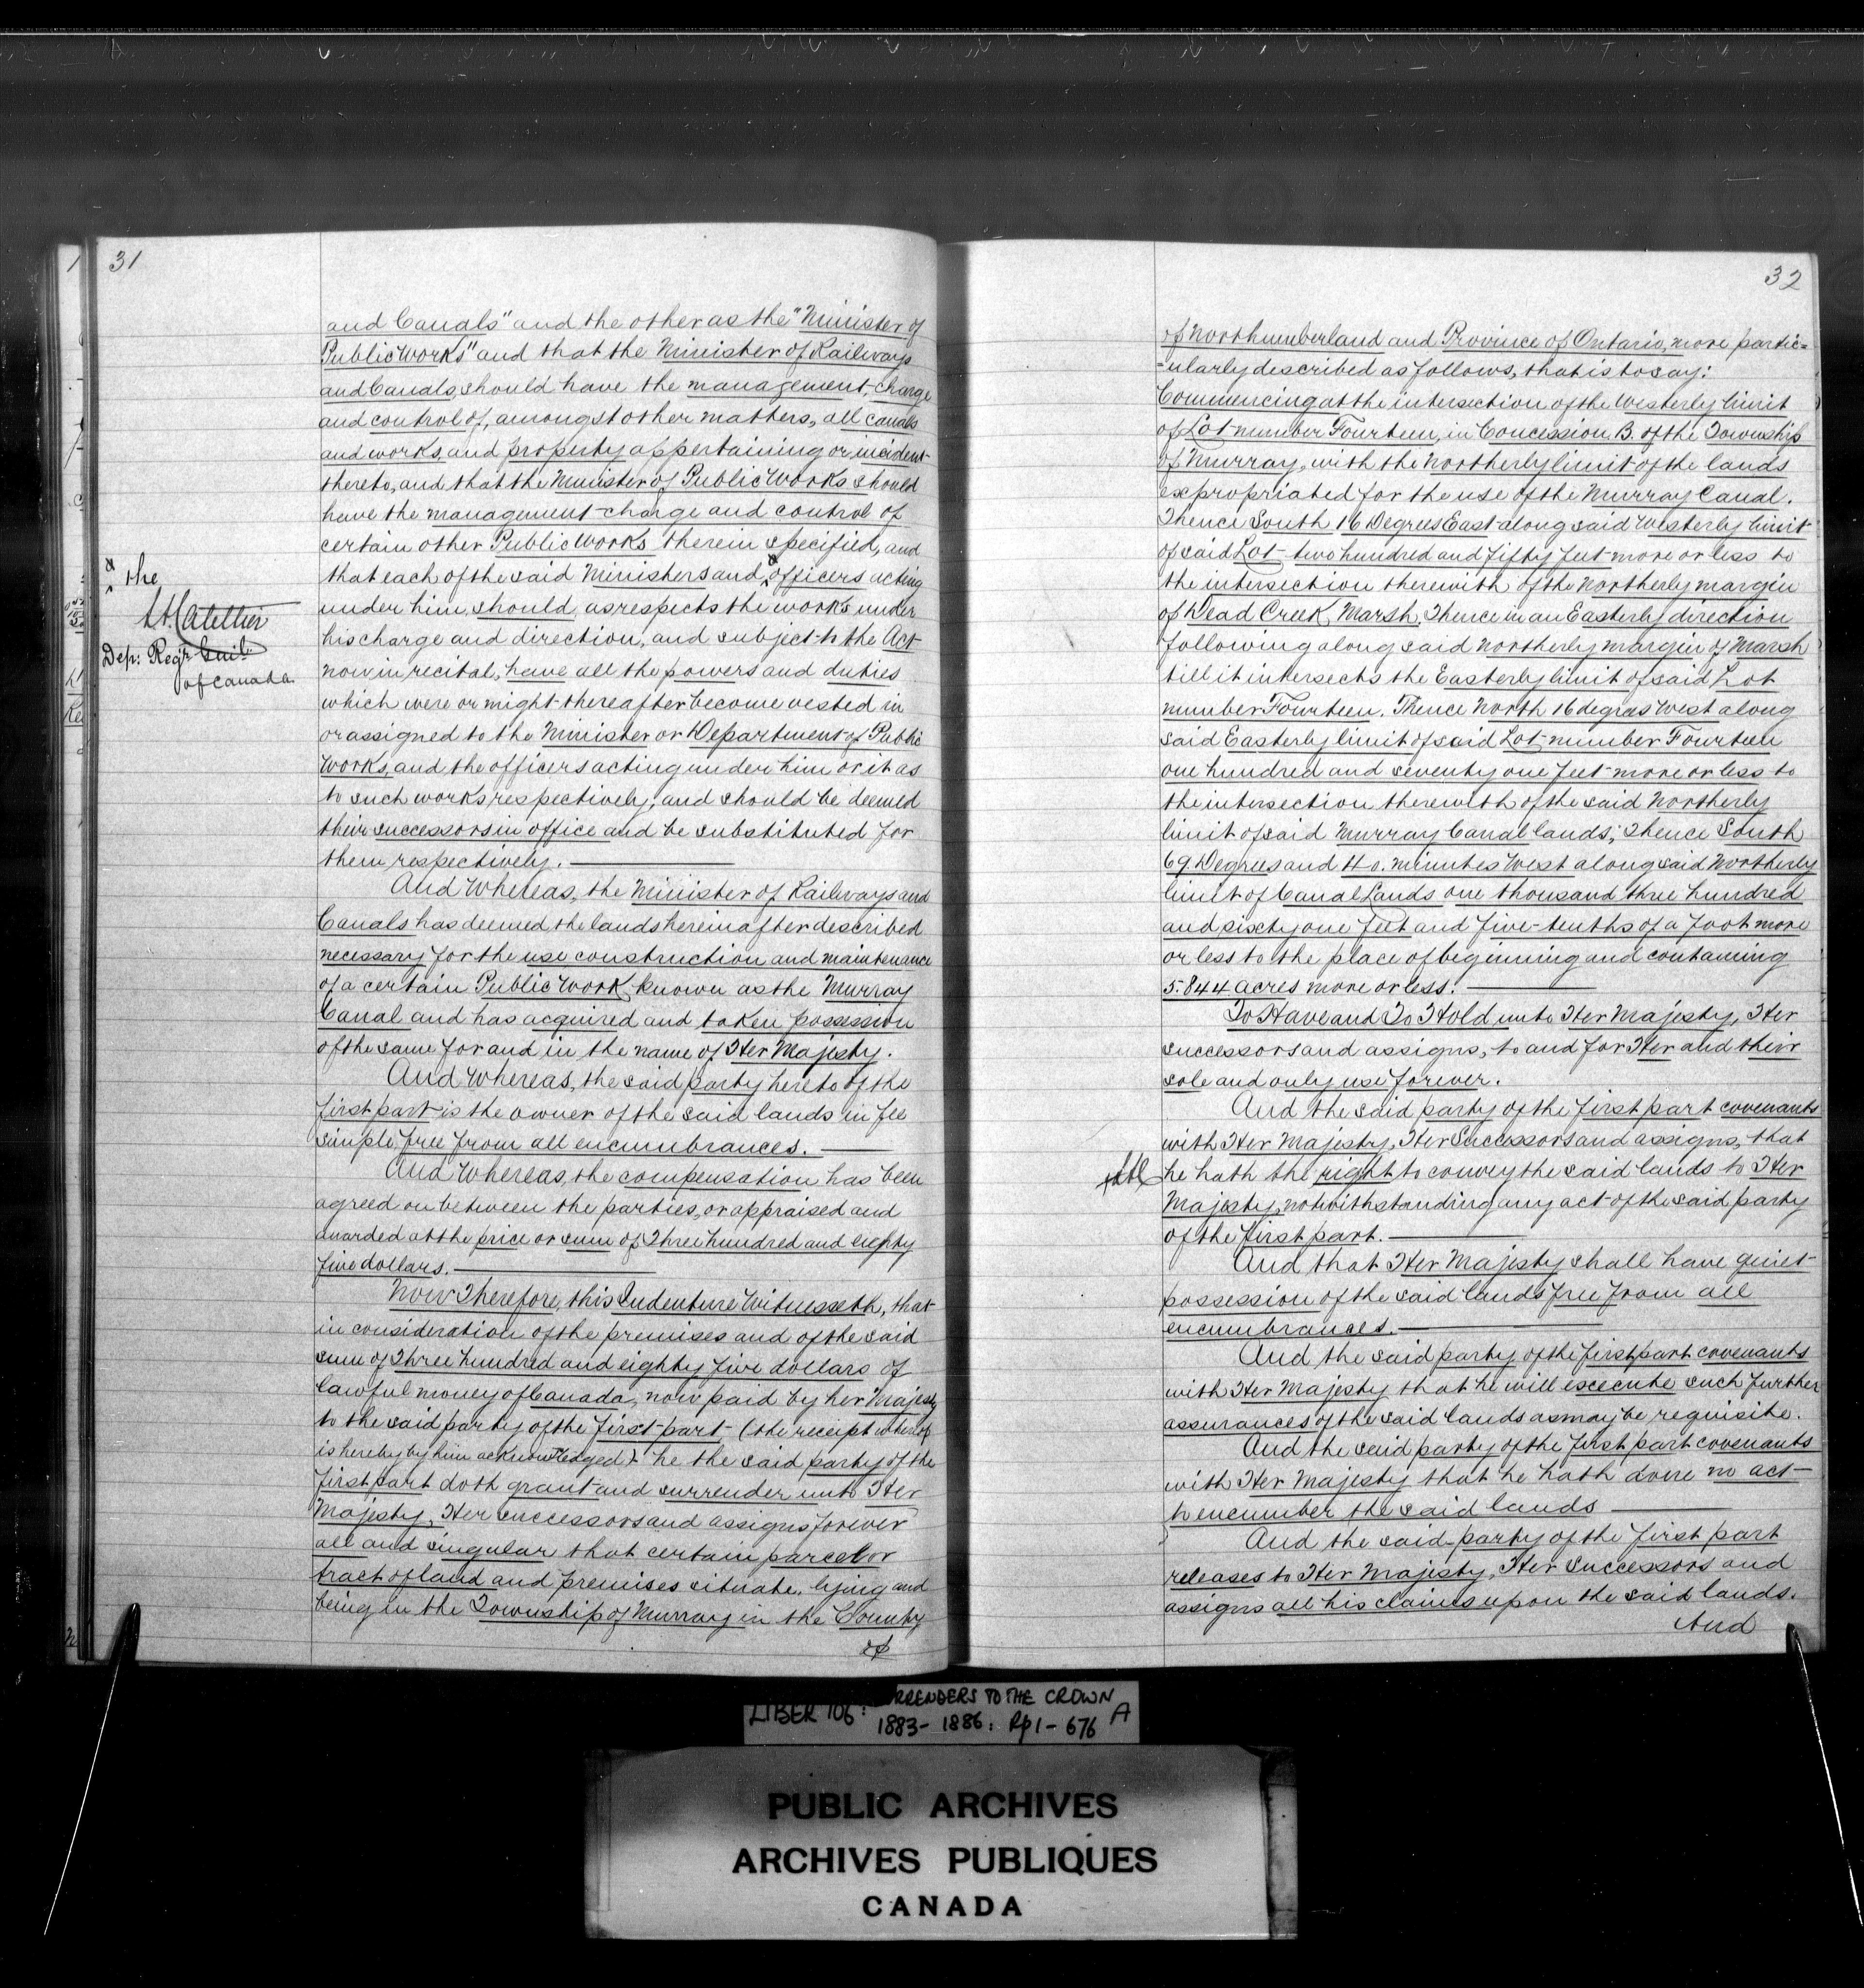 31
and Canals" and the other as the "Minister of
Public Works" and that the Minister of Railways
and Canals, should have the management, charge
and control of, amongst other matters, all canals
and works, and property appertaining or incident
thereto, and that the Minister of Public Works should
have the management charge and control of
certain other Public Works therein specified, and
that each of the said Ministers and officers acting
the
L. A. Catellier
Dep: Regr
of Canada
under him, should, as respects the works under
his charge and direction, and subject to the Act
now in recital, have all the powers and duties
which were or might thereafter become vested in
or assigned to the Minister or Department of Public
Works, and the officers acting under him or it as
to such works respectively, and should be deemed
their successors in office and be substituted for
them respectively.
And Whereas, the Minister of Railways and
Canals has deemed the lands hereinafter described
necessary for the use construction and maintenance
of a certain Public Work, known as the Murray
Canal and has acquired and taken possession
of the same for and in the name of Her Majesty.
And Whereas, the said party hereto of the
first part is the owner of the said lands in fee
simple free from all encumbrances.
And Whereas, the compensation has been
agreed on between the parties, or appraised and
awarded at the price or sum of Three hundred and eighty
five dollars.
Now Therefore, this Indenture Witnesseth, that
in consideration of the premises and of the said
sum of Three hundred and eighty five dollars of
lawful money of Canada, now paid by her Majesty
to the said party of the first part (the receipt whereof
is hereby by him acknowledged) he the said party of the
first part doth grant and surrender unto Her
Majesty, Her successors and assigns forever
all and singular that certain parcel or
tract of land and premises situate, lying and
being in the Township of Murray in the County
of
32
of Northumberland and Province of Ontario, more partic=
=ularly described as follows, that is to say:
Commencing at the intersection of the Westerly limit
of Lot number Fourteen, in Concession B. of the Township
of Murray, with the Northerly limit of the lands
expropriated for the use of the Murray Canal.
Thence South 16 Degrees East along said Westerly limit
of said Lot two hundred and fifty feet more or less to
the intersection therewith of the Northerly margin
of Dead Creek Marsh, Thence in an Easterly direction
following along said northerly margin of Marsh
till it intersects the Easterly limit of said Lot
number Fourteen. Thence North 16 degres West along
said Easterly limit of said Lot number Fourteen
one hundred and seventy one feet more or less to
the intersection therewith of the said Northerly
limit of said Murray Canal lands; Thence South
69 Degrees and 40. minutes West along said Northerly
limit of Canal Lands one thousand three hundred
and sixty one feet and five-tenths of a foot more
or less to the place of beginning and containing
5.844 acres more or less.
To Have and To Hold unto Her Majesty, Her
successors and assigns, to and for Her and their
sole and only use forever.
And the said party of the first part covenants
with Her Majesty, Her Successors and assigns, that
he hath the right to convey the said lands to Her
Majesty, notwithstanding any act of the said party
of the first part.
And that Her Majesty shall have quiet
possession of the said lands free from all
encumbrances.
And the said party of the first part covenants
with Her Majesty that he will execute such further
assurances of the said lands as may be requisite.
And the said party of the first part covenants
with Her Majesty that he hath done no act
to encumber the said lands
And the said party of the first part
releases to Her Majesty, Her Successors and
assigns all his claims upon the said lands.
And
LIBER 106: SURRENDERS TO THE CROWN
1883-1886: Rp 1-676 A
PUBLIC ARCHIVES
ARCHIVES PUBLIQUES
CANADA